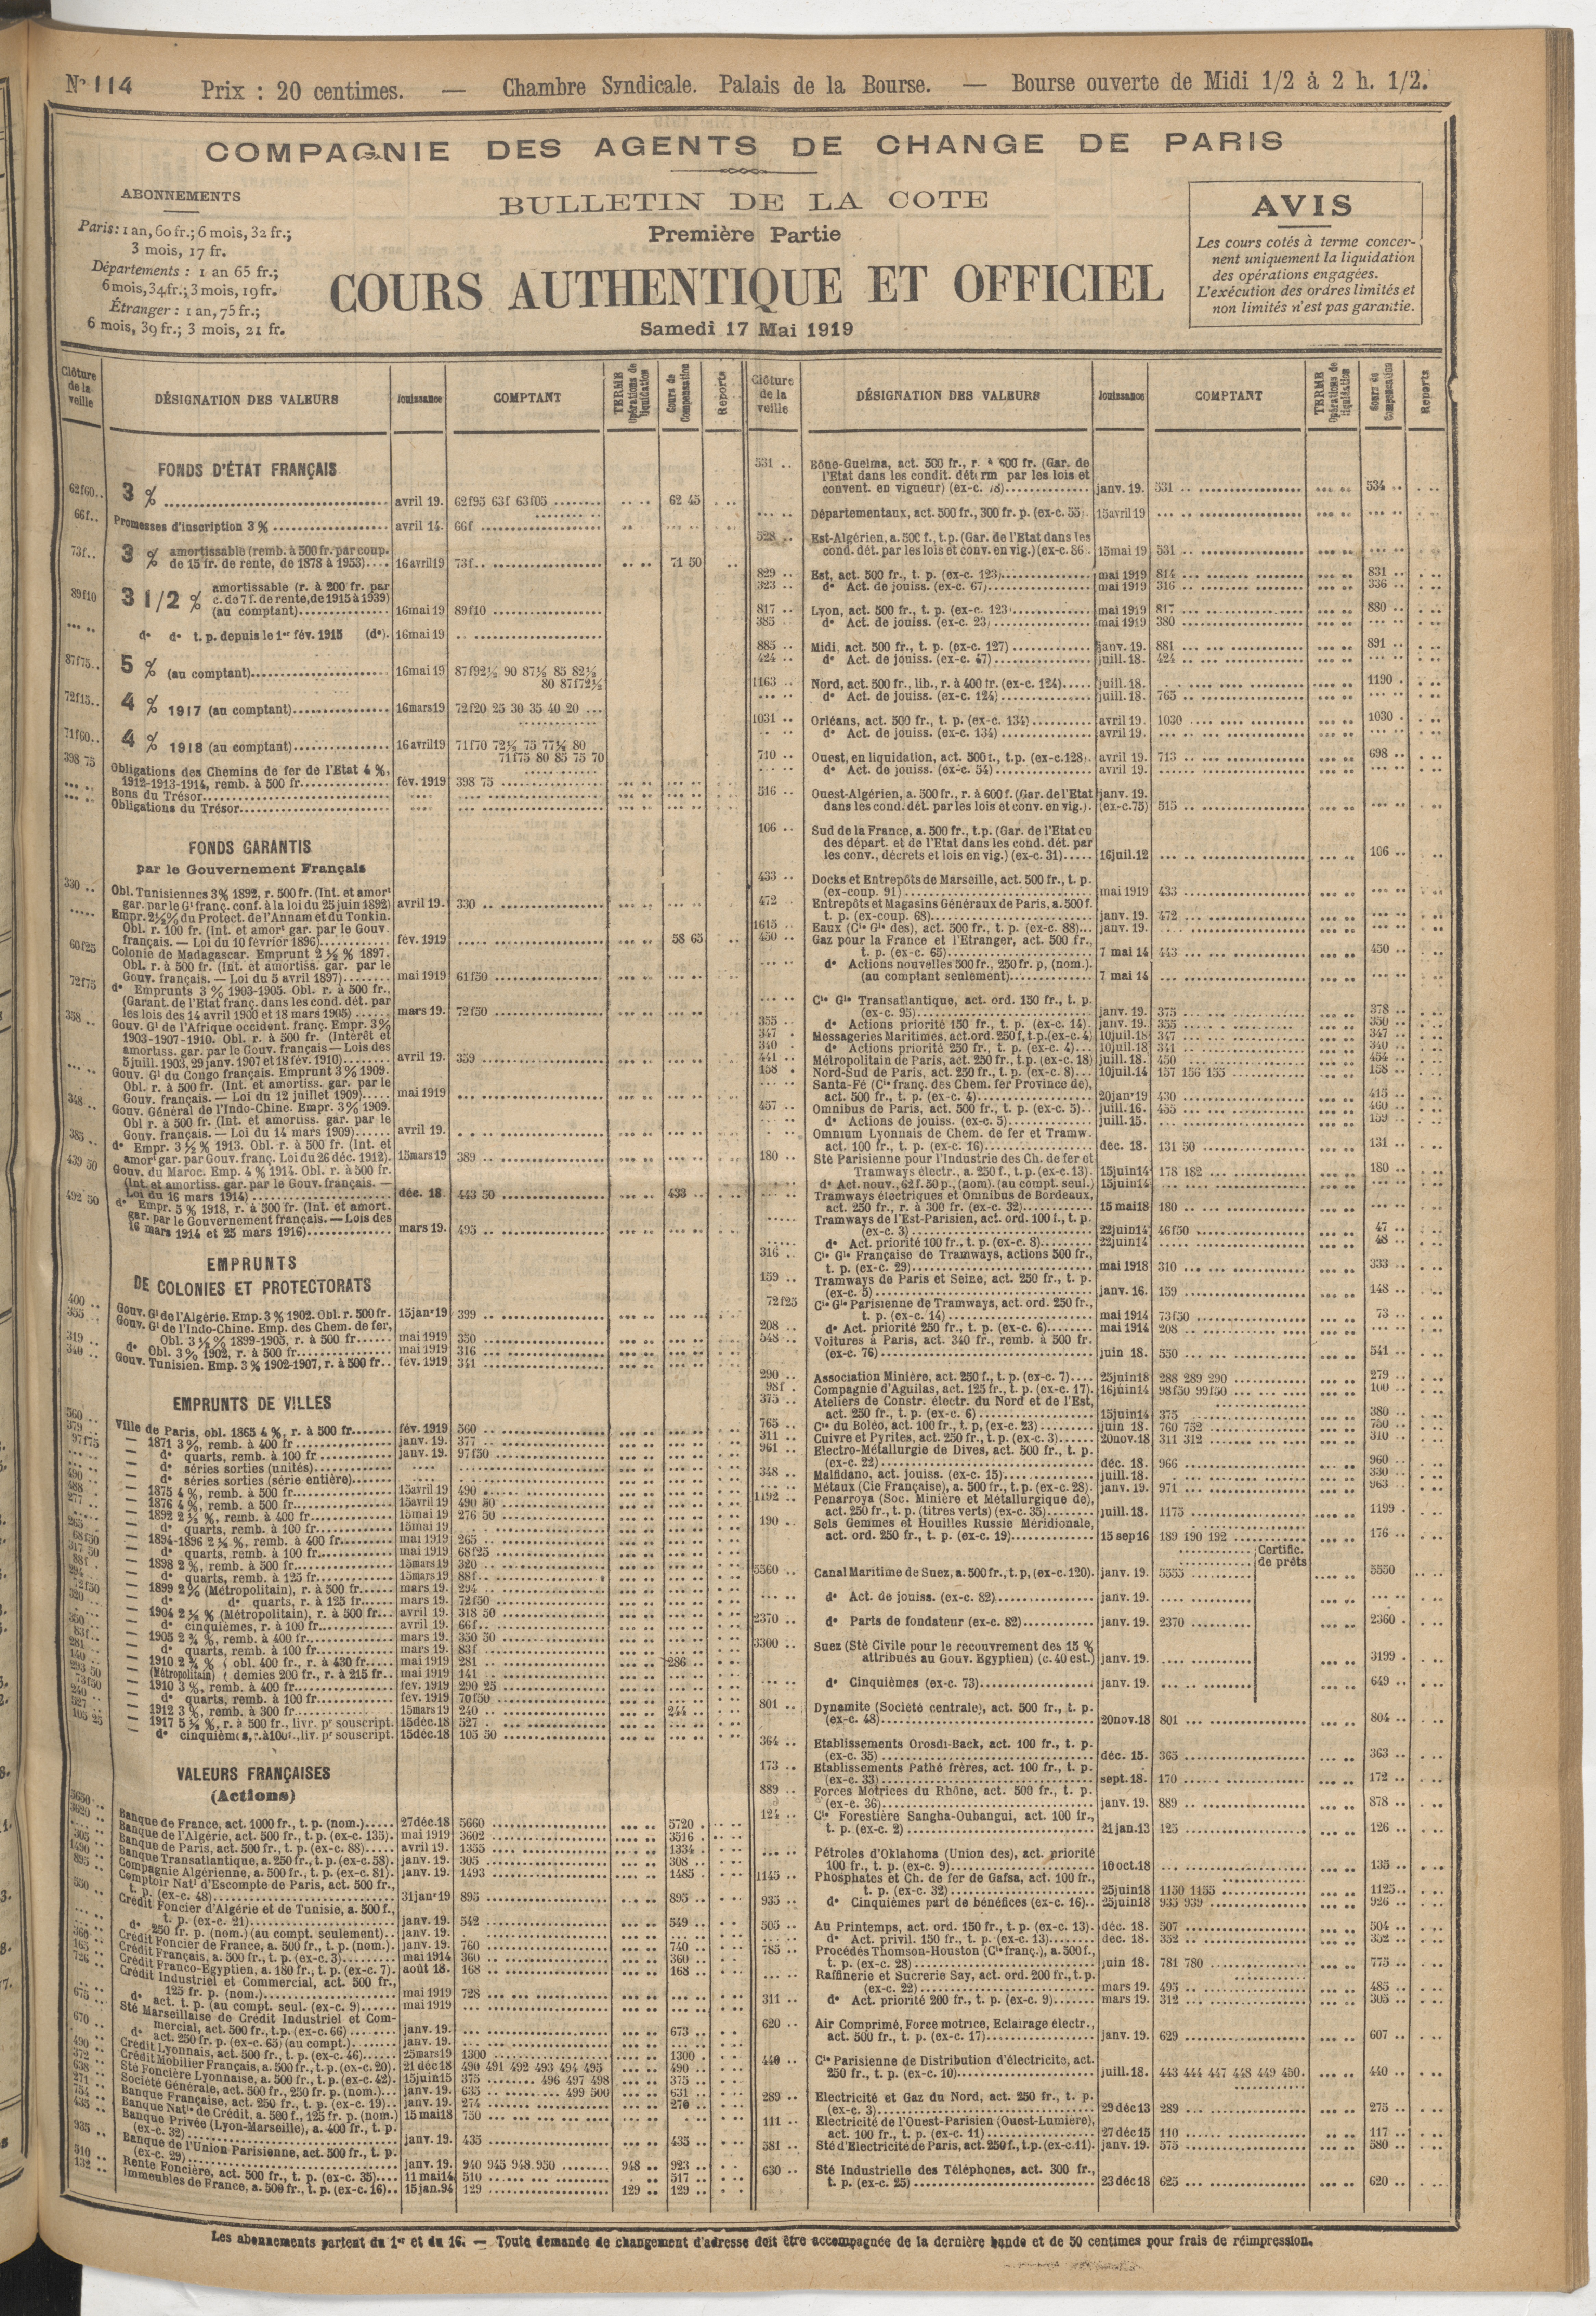 N° 114 Prix : 20 centimes. — Chambre Syndicale. Palais de la Bourse. — Bourse ouverte de Midi 1/2 à 2 h. 1/2.
COMPAGNIE DES AGENTS DE CHANGE DE PARIS
ABONNEMENTS
Paris : 1 an, 60 fr.; 6 mois, 32 fr.;
3 mois, 17 fr.
Départements : 1 an 65 fr.;
6 mois, 34 fr.; 3 mois, 19 fr.
Étranger : 1 an, 75 fr.;
6 mois, 39 fr.; 3 mois, 21 fr.
BULLETIN DE LA COTE
Première Partie
COURS AUTHENTIQUE ET OFFICIEL
Samedi 17 Mai 1919
AVIS
Les cours cotés à terme concer-
nent uniquement la liquidation
des opérations engagées.
L'exécution des ordres limités et
non limités n'est pas garantie.
Clôture de la veille DÉSIGNATION DES VALEURS Jouissance COMPTANT TERME Opérations de liquidation Cours de Compensation Reports
FONDS D'ÉTAT FRANÇAIS
62f60.. 3 % avril 19. 62f95 63f 63f05 62 45
66f.. Promesses d'inscription 3 % avril 14. 66f
73f.. 3 % amortissable (remb. à 500 fr. par coup.
de 15 fr. de rente, de 1878 à 1953) 16 avril 19 73f.. 71 50
89f10 3 1/2 % amortissable (r. à 200 fr. par
c. de 7 f. de rente, de 1915 à 1939)
(au comptant) 16 mai 19 89f10
d° d° t. p. depuis le 1er fév. 1915 (d°). 16 mai 19
87f75.. 5 % (au comptant) 16 mai 19 87f92½ 90 87½ 85 82½
80 87f72½
72f15.. 4 % 1917 (au comptant) 16 mars 19 72f20 25 30 35 40 20
71f60.. 4 % 1918 (au comptant) 16 avril 19 71f70 72½ 75 77½ 80
71f75 80 85 75 70
398 75 Obligations des Chemins de fer de l'Etat 4 %,
1912-1913-1914, remb. à 500 fr. fév. 1919 398 75
Bons du Trésor
Obligations du Trésor
FONDS GARANTIS
par le Gouvernement Français
330 .. Obl. Tunisiennes 3 % 1892, r. 500 fr. (Int. et amort
gar. par le Gt franç. conf. à la loi du 25 juin 1892) avril 19. 330 ..
Empr. 2½ % du Protect. de l'Annam et du Tonkin.
Obl. r. 100 fr. (Int. et amort gar. par le Gouv.
français. — Loi du 10 février 1896) fév. 1919 58 65
60f25 Colonie de Madagascar. Emprunt 2 ½ % 1897.
Obl. r. à 500 fr. (Int. et amortiss. gar. par le
Gouv. français. — Loi du 5 avril 1897) mai 1919 61f50
72f75 d° Emprunts 3 % 1903-1905. Obl. r. à 500 fr.,
(Garant. de l'Etat franç. dans les cond. dét. par
les lois des 14 avril 1900 et 18 mars 1905) mars 19. 72f50
358 .. Gouv. Gl de l'Afrique occident. franç. Empr. 3 %
1903-1907-1910. Obl. r. à 500 fr. (Intérêt et
amortiss. gar. par le Gouv. français — Lois des
5 juill. 1903, 29 janv. 1907 et 18 fév. 1910) avril 19. 359
Gouv. Gl du Congo français. Emprunt 3 % 1909.
Obl. r. à 500 fr. (Int. et amortiss. gar. par le
Gouv. français. — Loi du 12 juillet 1909) mai 1919
348.. Gouv. Général de l'Indo-Chine. Empr. 3 % 1909.
Obl r. à 500 fr. (Int. et amortiss. gar. par le
Gouv. français. — Loi du 14 mars 1909) avril 19.
385.. d° Empr. 3 ½ % 1913. Obl. r. à 500 fr. (Int. et
amort gar. par Gouv. franç. Loi du 26 déc. 1912). 15 mars 19 389
439 50 Gouv. du Maroc. Emp. 4 % 1914. Obl. r. à 500 fr.
(Int. et amortiss. gar. par le Gouv. français. —
Loi du 16 mars 1914) déc. 18. 443 50 433
492 50 d° Empr. 5 % 1918, r. à 500 fr. (Int. et amort.
gar. par le Gouvernement français. — Lois des
16 mars 1914 et 25 mars 1916) mars 19. 495
EMPRUNTS
DE COLONIES ET PROTECTORATS
400 .. Gouv. Gl de l'Algérie. Emp. 3 % 1902. Obl. r. 500 fr. 15 janr 19 399
355 .. Gouv. Gl de l'Indo-Chine. Emp. des Chem. de fer,
Obl. 3 ½ % 1899-1905, r. à 500 fr. mai 1919 350
319 .. d° Obl. 3 % 1902, r. à 500 fr. mai 1919 316
340 .. Gouv. Tunisien. Emp. 3 % 1902-1907, r. à 500 fr. fév. 1919 341
EMPRUNTS DE VILLES
560 .. Ville de Paris, obl. 1865 4 %, r. à 500 fr. fév. 1919 560
379 .. — 1871 3 %, remb. à 400 fr. janv. 19. 377
97f75 — d° quarts, remb. à 100 fr. janv. 19. 97f50
— d° séries sorties (unités)
— d° séries sorties (série entière)
490 .. — 1875 4 %, remb. à 500 fr. 15 avril 19 490
488 .. — 1876 4 %, remb. à 500 fr. 15 avril 19 490 50
277 .. — 1892 2 ½ %, remb. à 400 fr. 15 mai 19 276 50
— d° quarts, remb. à 100 fr. 15 mai 19
265 .. — 1894-1896 2 ½ %, remb. à 400 fr. mai 1919 265
68f50 — d° quarts, remb. à 100 fr. mai 1919 68f25
317 50 — 1898 2 %, remb. à 500 fr. 15 mars 19 320
88f . — d° quarts, remb. à 125 fr. 15 mars 19 88f
294 .. — 1899 2 % (Métropolitain), r. à 500 fr. mars 19. 294
72f50 — d° d° quarts, r. à 125 fr. mars 19. 72f50
320 .. — 1904 2 ½ % (Métropolitain), r. à 500 fr. avril 19. 318 50
— d° cinquièmes, r. à 100 fr. avril 19. 66f
350 .. — 1905 2 ¾ %, remb. à 400 fr. mars 19. 350 50
83f.. — d° quarts, remb. à 100 fr. mars 19. 83f
281 .. — 1910 2 ¾ % obl. 400 fr., r. à 430 fr. mai 1919 281 286
140 .. — (Métropolitain) demies 200 fr., r. à 215 fr. mai 1919 141
293 50 — 1910 3 %, remb. à 400 fr. fév. 1919 290 25
73f50 — d° quarts, remb. à 100 fr. fév. 1919 70f50
240 .. — 1912 3 %, remb. à 300 fr. 15 mars 19 240 244
527 .. — 1917 5 ½ %, r. à 500 fr., livr. pr souscript. 15 déc. 18 527
105 25 d° cinquièmes, r. à 100 f., liv. pr souscript. 15 déc. 18 105 50
VALEURS FRANÇAISES
(Actions)
5650 .. Banque de France, act. 1000 fr., t. p. (nom.) 27 déc. 18 5660 5720
3620 .. Banque de l'Algérie, act. 500 fr., t. p. (ex-c. 135). mai 1919 3602 3516
Banque de Paris, act. 500 fr., t. p. (ex-c. 88) avril 19. 1355 1334
305 .. Banque Transatlantique, a. 250 fr., t. p. (ex-c. 58). janv. 19. 305 308
1490 .. Compagnie Algérienne, a. 500 fr., t. p. (ex-c. 81). janv. 19. 1493 1485
895 .. Comptoir Natl d'Escompte de Paris, act. 500 fr.,
t. p. (ex-c. 48) 31 janr 19 895 895
550 .. Crédit Foncier d'Algérie et de Tunisie, a. 500 f.,
t. p. (ex-c. 21) janv. 19. 542 549
d° 250 fr. p. (nom.) (au compt. seulement) janv. 19.
Crédit Foncier de France, a. 500 fr., t. p. (nom.). janv. 19. 760 740
360 .. Crédit Français, a. 500 fr., t. p. (ex-c. 3) mai 1914 360 360
165 .. Crédit Franco-Egyptien, a. 180 fr., t. p. (ex-c. 7). août 18. 168 168
726 .. Crédit Industriel et Commercial, act. 500 fr.,
125 fr. p. (nom.) mai 1919 728
d° act. t. p. (au compt. seul. (ex-c. 9) mai 1919
675 .. Sté Marseillaise de Crédit Industriel et Com-
mercial, act. 500 fr., t. p. (ex-c. 66) janv. 19. 673
670 .. d° act. 250 fr. p. (ex-c. 65) (au compt.) janv. 19.
Crédit Lyonnais, act. 500 fr., t. p. (ex-c. 46) 25 mars 19 1300 1300
490 .. Crédit Mobilier Français, a. 500 fr., t. p. (ex-c. 20). 21 déc 18 490 491 492 493 494 495 490
372 .. Sté Foncière Lyonnaise, a. 500 fr., t. p. (ex-c. 42). 15 juin 15 375 496 497 498 375
638 .. Société Générale, act. 500 fr., 250 fr. p. (nom.) janv. 19. 635 499 500 631
271 .. Banque Française, act. 250 fr., t. p. (ex-c. 19) janv. 19. 274 270
754 .. Banque Natle de Crédit, a. 500 f., 125 fr. p. (nom.) 15 mai 18 750
435 .. Banque Privée (Lyon-Marseille), a. 400 fr., t. p.
(ex-c. 32) janv. 19. 435 435
935 .. Banque de l'Union Parisienne, act. 500 fr., t. p.
(ex-c. 29) janv. 19. 940 945 948 950 948 923
510 .. Rente Foncière, act. 500 fr., t. p. (ex-c. 35) 11 mai 14 510 517
132 .. Immeubles de France, a. 500 fr., t. p. (ex-c. 16) 15 jan. 94 129 129 129
Clôture de la veille DÉSIGNATION DES VALEURS Jouissance COMPTANT TERME Opérations de liquidation Cours de Compensation Reports
531 .. Bône-Guelma, act. 500 fr., r. à 600 fr. (Gar. de
l'Etat dans les condit. déterm par les lois et
convent. en vigueur) (ex-c. 78) janv. 19. 531 534
Départementaux, act. 500 fr., 300 fr. p. (ex-c. 55). 15 avril 19
528 .. Est-Algérien, a. 500 f., t. p. (Gar. de l'Etat dans les
cond. dét. par les lois et conv. en vig.) (ex-c. 86). 15 mai 19 531
829 .. Est, act. 500 fr., t. p. (ex-c. 123) mai 1919 814 831
323 .. d° Act. de jouiss. (ex-c. 67) mai 1919 316 336
817 .. Lyon, act. 500 fr., t. p. (ex-c. 123) mai 1919 817 880
385 .. d° Act. de jouiss. (ex-c. 23) mai 1919 380
885 .. Midi, act. 500 fr., t. p. (ex-c. 127) janv. 19. 881 891
424 .. d° Act. de jouiss. (ex-c. 47) juill. 18. 424
1163 .. Nord, act. 500 fr., lib., r. à 400 fr. (ex-c. 124) juill. 18. 1190
d° Act. de jouiss. (ex-c. 124) juill. 18. 765
1031 .. Orléans, act. 500 fr., t. p. (ex-c. 134) avril 19. 1030 1030
d° Act. de jouiss. (ex-c. 134) avril 19.
710 .. Ouest, en liquidation, act. 500 f., t. p. (ex-c. 128). avril 19. 713 698
d° Act. de jouiss. (ex-c. 54) avril 19.
516 .. Ouest-Algérien, a. 500 fr., r. à 600 f. (Gar. de l'Etat janv. 19.
dans les cond. dét. par les lois et conv. en vig.). (ex-c. 75) 515
106 .. Sud de la France, a. 500 fr., t. p. (Gar. de l'Etat ou
des départ. et de l'Etat dans les cond. dét. par
les conv., décrets et lois en vig.) (ex-c. 31) 16 juil. 12 106
433 .. Docks et Entrepôts de Marseille, act. 500 fr., t. p.
(ex-coup. 91) mai 1919 433
472 .. Entrepôts et Magasins Généraux de Paris, a. 500 f.
t. p. (ex-coup. 68) janv. 19. 472
1615 .. Eaux (Cie Gle des), act. 500 fr., t. p. (ex-c. 88) janv. 19.
450 .. Gaz pour la France et l'Etranger, act. 500 fr.,
t. p. (ex-c. 65) 7 mai 14 443 450
d° Actions nouvelles 500 fr., 250 fr. p, (nom.).
(au comptant seulement) 7 mai 14
Cie Gle Transatlantique, act. ord. 150 fr., t. p.
(ex-c. 95) janv. 19. 375 378
355 .. d° Actions priorité 150 fr., t. p. (ex-c. 14). janv. 19. 355 350
347 . Messageries Maritimes, act. ord. 250 f, t. p. (ex-c. 4) 10 juil. 18 347 347
340 . d° Actions priorité 250 fr., t. p. (ex-c. 4) 10 juil. 18 341 340
441 .. Métropolitain de Paris, act. 250 fr., t. p. (ex-c. 18) juill. 18. 450 454
158 . Nord-Sud de Paris, act. 250 fr., t. p. (ex-c. 8) 10 juil. 14 157 156 155 158
Santa-Fé (Cie franç. des Chem. fer Province de),
act. 500 fr., t. p. (ex-c. 4) 20 janr 19 430 415
457 .. Omnibus de Paris, act. 500 fr., t. p. (ex-c. 5) juill. 16. 455 460
d° Actions de jouiss. (ex-c. 5) juill. 15. 159
Omnium Lyonnais de Chem. de fer et Tramw.
act. 100 fr., t. p. (ex-c. 16) déc. 18. 131 50 131
180 .. Sté Parisienne pour l'Industrie des Ch. de fer et
Tramways électr., a. 250 f., t. p. (ex-c. 13). 15 juin 14 178 182 180
d° Act. nouv., 62 f. 50 p., (nom). (au compt. seul.) 15 juin 14
Tramways électriques et Omnibus de Bordeaux,
act. 250 fr., r. à 300 fr. (ex-c. 32) 15 mai 18 180
Tramways de l'Est-Parisien, act. ord. 100 f., t. p.
(ex-c. 3) 22 juin 14 46f50 47
d° Act. priorité 100 fr., t. p. (ex-c. 8) 22 juin 14 48
316 .. Cie Gle Française de Tramways, actions 500 fr.,
t. p. (ex-c. 29) mai 1918 310 333
159 .. Tramways de Paris et Seine, act. 250 fr., t. p.
(ex-c. 5) janv. 16. 159 148
72f25 Cie Gle Parisienne de Tramways, act. ord. 250 fr.,
t. p. (ex-c. 14) mai 1914 73f50 73
208 .. d° Act. priorité 250 fr., t. p. (ex-c. 6) mai 1914 208
548 .. Voitures à Paris, act. 340 fr., remb. à 500 fr.
(ex-c. 76) juin 18. 550 541
290 .. Association Minière, act. 250 f., t. p. (ex-c. 7) 25 juin 18 288 289 290 279
98f . Compagnie d'Aguilas, act. 125 fr., t. p. (ex-c. 17). 16 juin 14 98f50 99f50 100
375 .. Ateliers de Constr. électr. du Nord et de l'Est,
act. 250 fr., t. p. (ex-c. 6) 15 juin 14 375 380
765 .. Cie du Boléo, act. 100 fr., t. p, (ex-c. 23) juin 18. 760 752 750
311 .. Cuivre et Pyrites, act. 250 fr., t. p. (ex-c. 3) 20 nov. 18 311 312 310
961 .. Electro-Métallurgie de Dives, act. 500 fr., t. p.
(ex-c. 22) déc. 18. 966 960
348 .. Malfidano, act. jouiss. (ex-c. 15) juill. 18. 330
Métaux (Cie Française), a. 500 fr., t. p. (ex-c. 28). janv. 19. 971 963
1192 .. Penarroya (Soc. Minière et Métallurgique de),
act. 250 fr., t. p. (titres verts) (ex-c. 35) juill. 18. 1175 1199
190 .. Sels Gemmes et Houilles Russie Méridionale,
act. ord. 250 fr., t. p. (ex-c. 19) 15 sep 16 189 190 192 176
Certific.
de prêts
5560 .. Canal Maritime de Suez, a. 500 fr., t. p, (ex-c. 120). janv. 19. 5555 5550
d° Act. de jouiss. (ex-c. 82) janv. 19.
2370 .. d° Parts de fondateur (ex-c. 82) janv. 19. 2370 2360
3300 .. Suez (Sté Civile pour le recouvrement des 15 %
attribués au Gouv. Egyptien) (c. 40 est.) janv. 19. 3199
d° Cinquièmes (ex-c. 73) janv. 19. 649
801 .. Dynamite (Société centrale), act. 500 fr., t. p.
(ex-c. 48) 20 nov. 18 801 804
364 .. Etablissements Orosdi-Back, act. 100 fr., t. p.
(ex-c. 35) déc. 15. 365 363
173 .. Etablissements Pathé frères, act. 100 fr., t. p.
(ex-c. 33) sept. 18. 170 172
889 .. Forces Motrices du Rhône, act. 500 fr., t. p.
(ex-c. 36) janv. 19. 889 878
124 .. Cie Forestière Sangha-Oubangui, act. 100 fr.,
t. p. (ex-c. 2) 21 jan. 13 125 126
Pétroles d'Oklahoma (Union des), act. priorité
100 fr., t. p. (ex-c. 9) 10 oct. 18 135
1145 .. Phosphates et Ch. de fer de Gafsa, act. 100 fr.,
t. p. (ex-c. 32) 25 juin 18 1150 1155 1125
935 .. d° Cinquièmes part de bénéfices (ex-c. 16) 25 juin 18 935 939 926
505 .. Au Printemps, act. ord. 150 fr., t. p. (ex-c. 13). déc. 18. 507 504
d° Act. privil. 150 fr., t. p. (ex-c. 13) déc. 18. 352 352
785 .. Procédés Thomson-Houston (Cie franç.), a. 500 f.,
t. p. (ex-c. 28) juin 18. 781 780 775
Raffinerie et Sucrerie Say, act. ord. 200 fr., t. p.
(ex-c. 22) mars 19. 495 485
311 .. d° Act. priorité 200 fr., t. p. (ex-c. 9) mars 19. 312 305
620 .. Air Comprimé, Force motrice, Eclairage électr.,
act. 500 fr., t. p. (ex-c. 17) janv. 19. 629 607
440 .. Cie Parisienne de Distribution d'électricité, act.
250 fr., t. p. (ex-c. 10) juill. 18. 443 444 447 448 449 450 440
289 .. Electricité et Gaz du Nord, act. 250 fr., t. p.
(ex-c. 3) 29 déc 13 289 275
111 .. Electricité de l'Ouest-Parisien (Ouest-Lumière),
act. 100 fr., t. p. (ex-c. 11) 27 déc 15 110 117
581 .. Sté d'Electricité de Paris, act. 250 f., t. p. (ex-c. 11). janv. 19. 575 580
630 .. Sté Industrielle des Téléphones, act. 300 fr.,
t. p. (ex-c. 25) 23 déc 18 625 620
Les abonnements partent du 1er et du 16. — Toute demande de changement d'adresse doit être accompagnée de la dernière bande et de 50 centimes pour frais de réimpression.